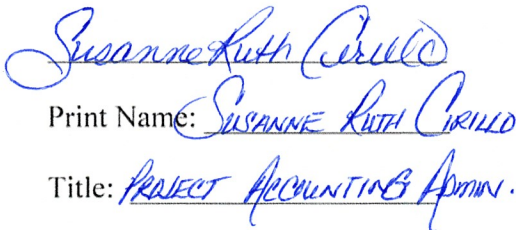 Susanne Ruth Cirillo
Print Name: SUSANNE RUTH CIRILLO
Title: PROJECT ACCOUNTING ADMIN.